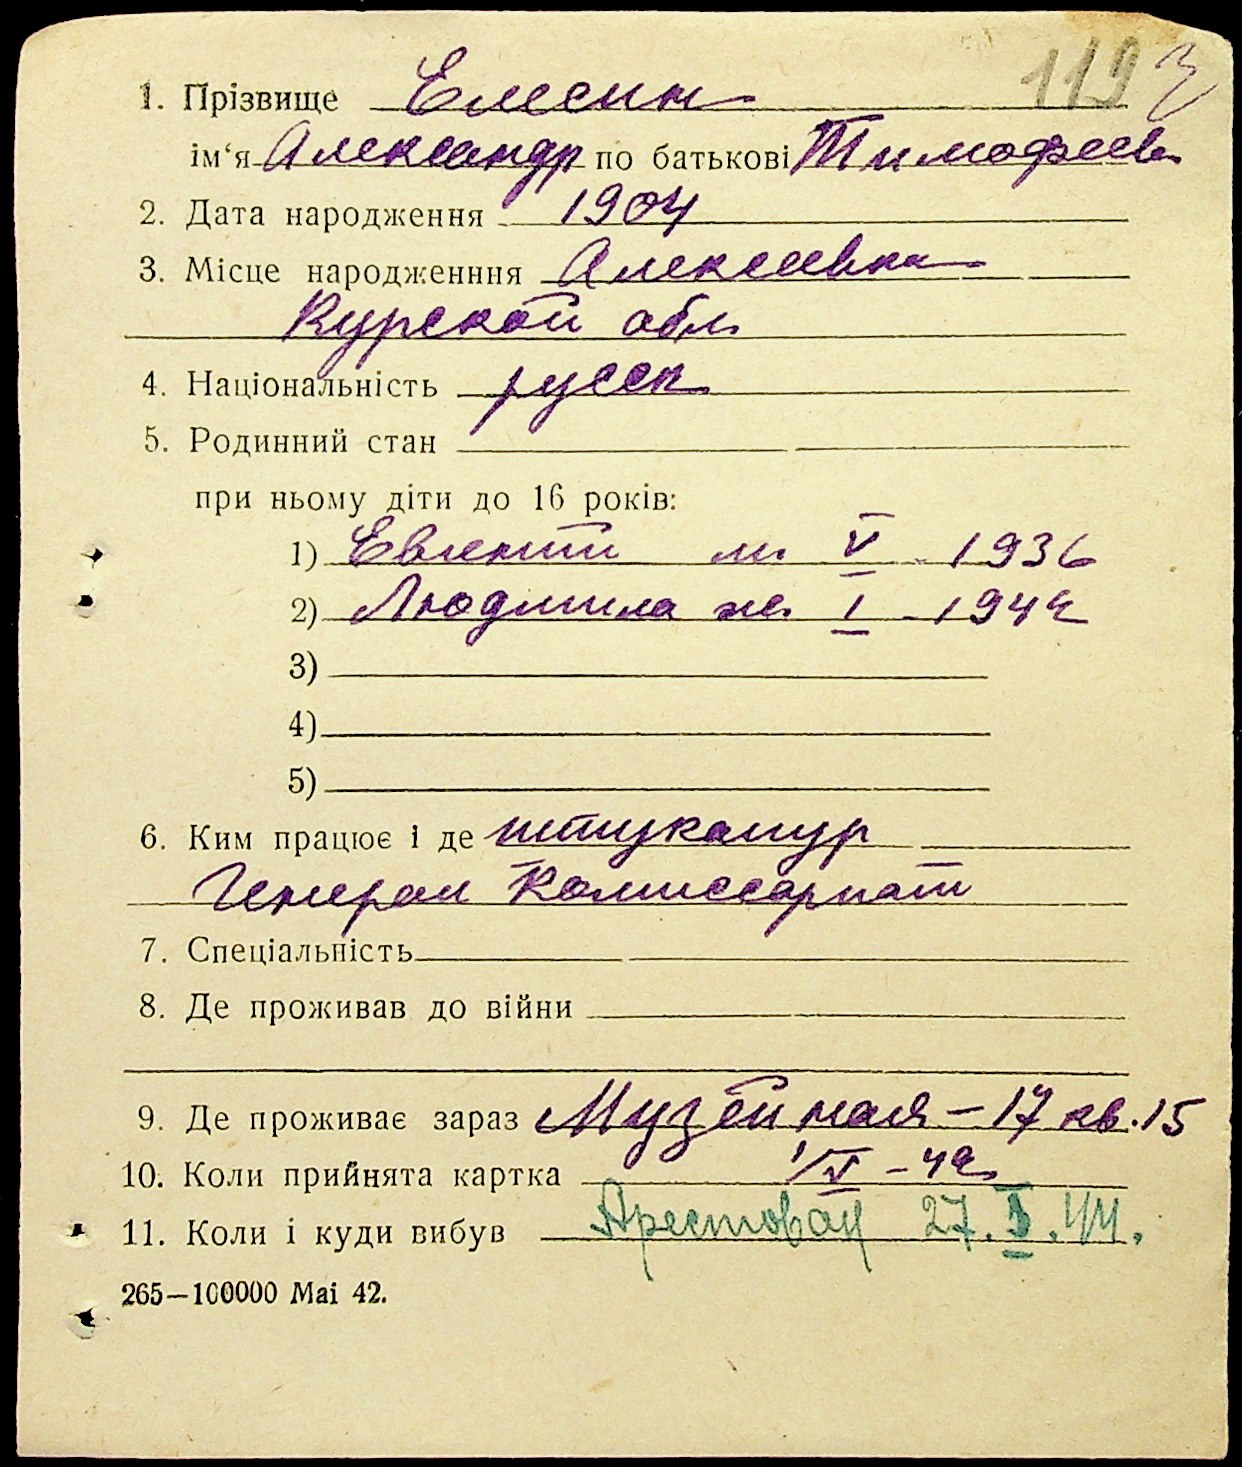 119 з
1. Прізвище Елесин
ім‘я Александр по батькові Тимофеев
2. Дата народження 1904
3. Місце народженння Алексеевка
Курской обл.
4. Національність русск
5. Родинний стан
при ньому діти до 16 років:
1) Евгений м. V - 1936
2) Людмила ж. I - 1942
3)
4)
5)
6. Ким працює і де штукатур
Генерал Комиссариат
7. Спеціальність
8. Де проживав до війни
9. Де проживає зараз Музейная - 17 кв. 15
10. Коли прийнята картка 1/V - 42
11. Коли і куди вибув Арестован 27.
265—100000 Mai 42.